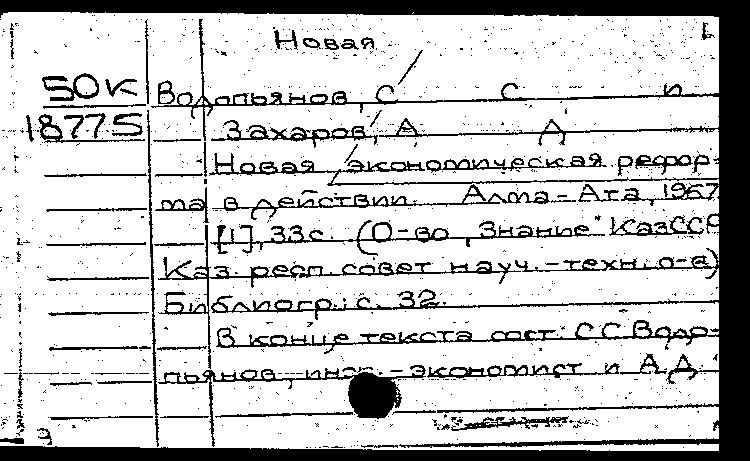 Новая
50К Водопьянов, С С и
18775 Захаров, А Д
Новая экономическая рефор-
ма в действии. Алма-Ата, 1967
[1], 33с. (О-во „Знание" КазССР
Каз. респ. совет науч.-техн. о-в)
Библиогр.: с. 32.
В конце текста сост: С С Водо-
пьянов, инж.-экономист и А Д